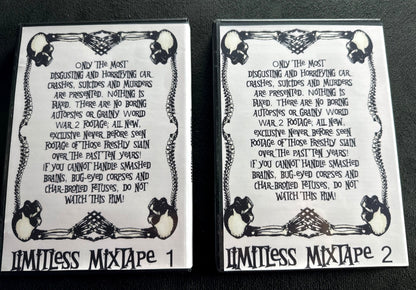 ONLY THE MOST
DISGUSTING AND HORRIFYING CAR
CRASHES, SUICIDES AND MURDERS
ARE PRESENTED. NOTHING IS
FAKED. THERE ARE NO BORING
AUTOPSIES OR GRAINY WORLD
WAR 2 FOOTAGE; ALL NEW,
EXCLUSIVE NEVER BEFORE SEEN
FOOTAGE OF THOSE FRESHLY SLAIN
OVER THE PAST TEN YEARS!
IF YOU CANNOT HANDLE SMASHED
BRAINS, BUG-EYED CORPSES AND
CHAR-BROILED FETUSES, DO NOT
WATCH THIS FILM!
LIMITLESS MIXTAPE 1
ONLY THE MOST
DISGUSTING AND HORRIFYING CAR
CRASHES, SUICIDES AND MURDERS
ARE PRESENTED. NOTHING IS
FAKED. THERE ARE NO BORING
AUTOPSIES OR GRAINY WORLD
WAR 2 FOOTAGE; ALL NEW,
EXCLUSIVE NEVER BEFORE SEEN
FOOTAGE OF THOSE FRESHLY SLAIN
OVER THE PAST TEN YEARS!
IF YOU CANNOT HANDLE SMASHED
BRAINS, BUG-EYED CORPSES AND
CHAR-BROILED FETUSES, DO NOT
WATCH THIS FILM!
LIMITLESS MIXTAPE 2